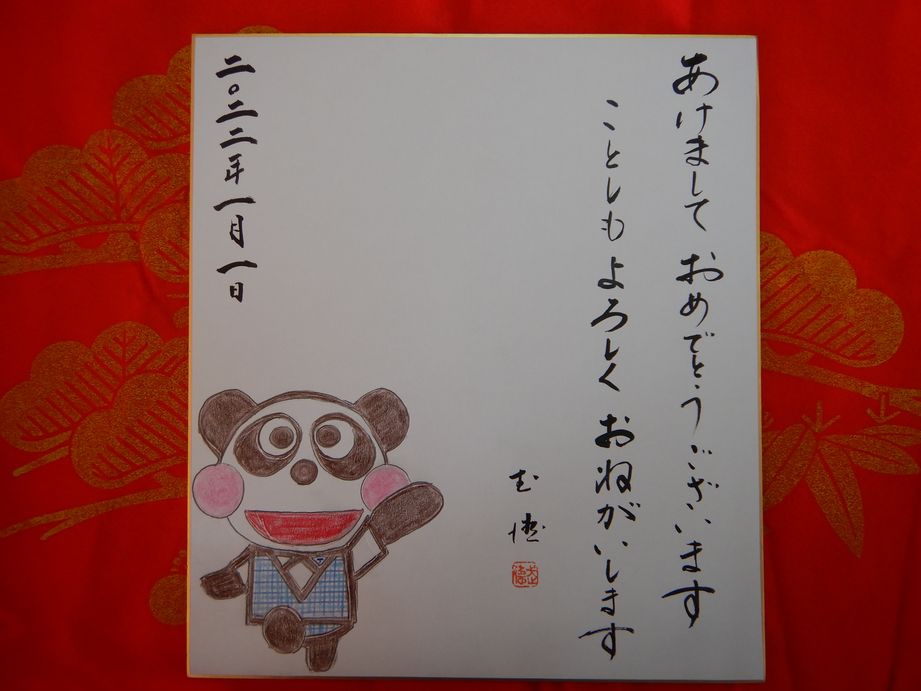 あけまして おめでとうございます
ことしも よろしく おねがいします
二〇二二年 一月一日